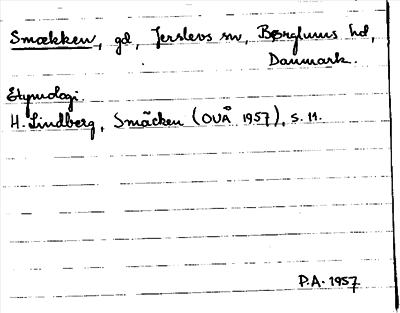 Smækken, gd, Jerslevs sn, Børglums hd,
Danmark.
Etymologi
H. Lindberg, Smäcken (OUÅ 1957), s. 11.
P.A. 1957